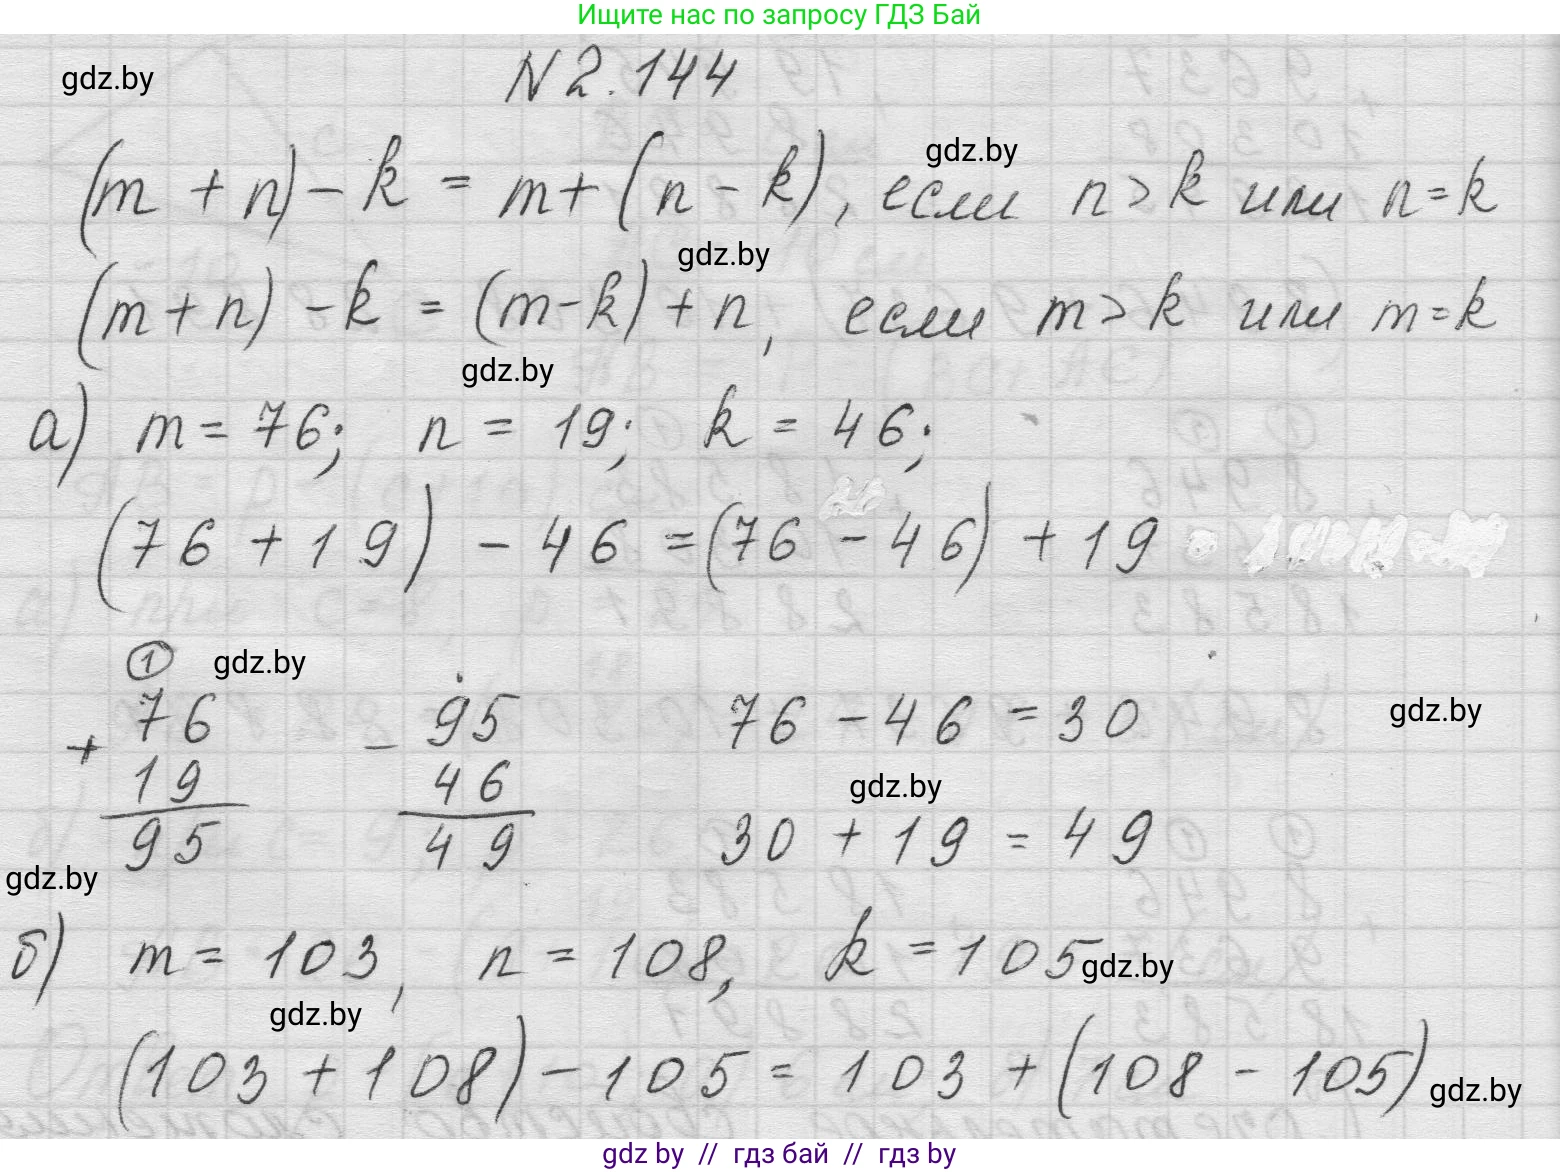 Ищите нас по запросу ГДЗ Бай
gdz.by
N 2.144
gdz.by
(m + n) - k = m + (n - k), если n > k или n = k
gdz.by
(m + n) - k = (m - k) + n, если m > k или m = k
gdz.by
а) m = 76; n = 19; k = 46;
(76 + 19) - 46 = (76 - 46) + 19
1 gdz.by
+ 76 - 95 76 - 46 = 30 gdz.by
19 46 gdz.by
95 49 30 + 19 = 49
gdz.by
б) m = 103, n = 108, k = 105 gdz.by
gdz.by
(103 + 108) - 105 = 103 + (108 - 105) gdz.by
gdz by // гдз бай // гдз by